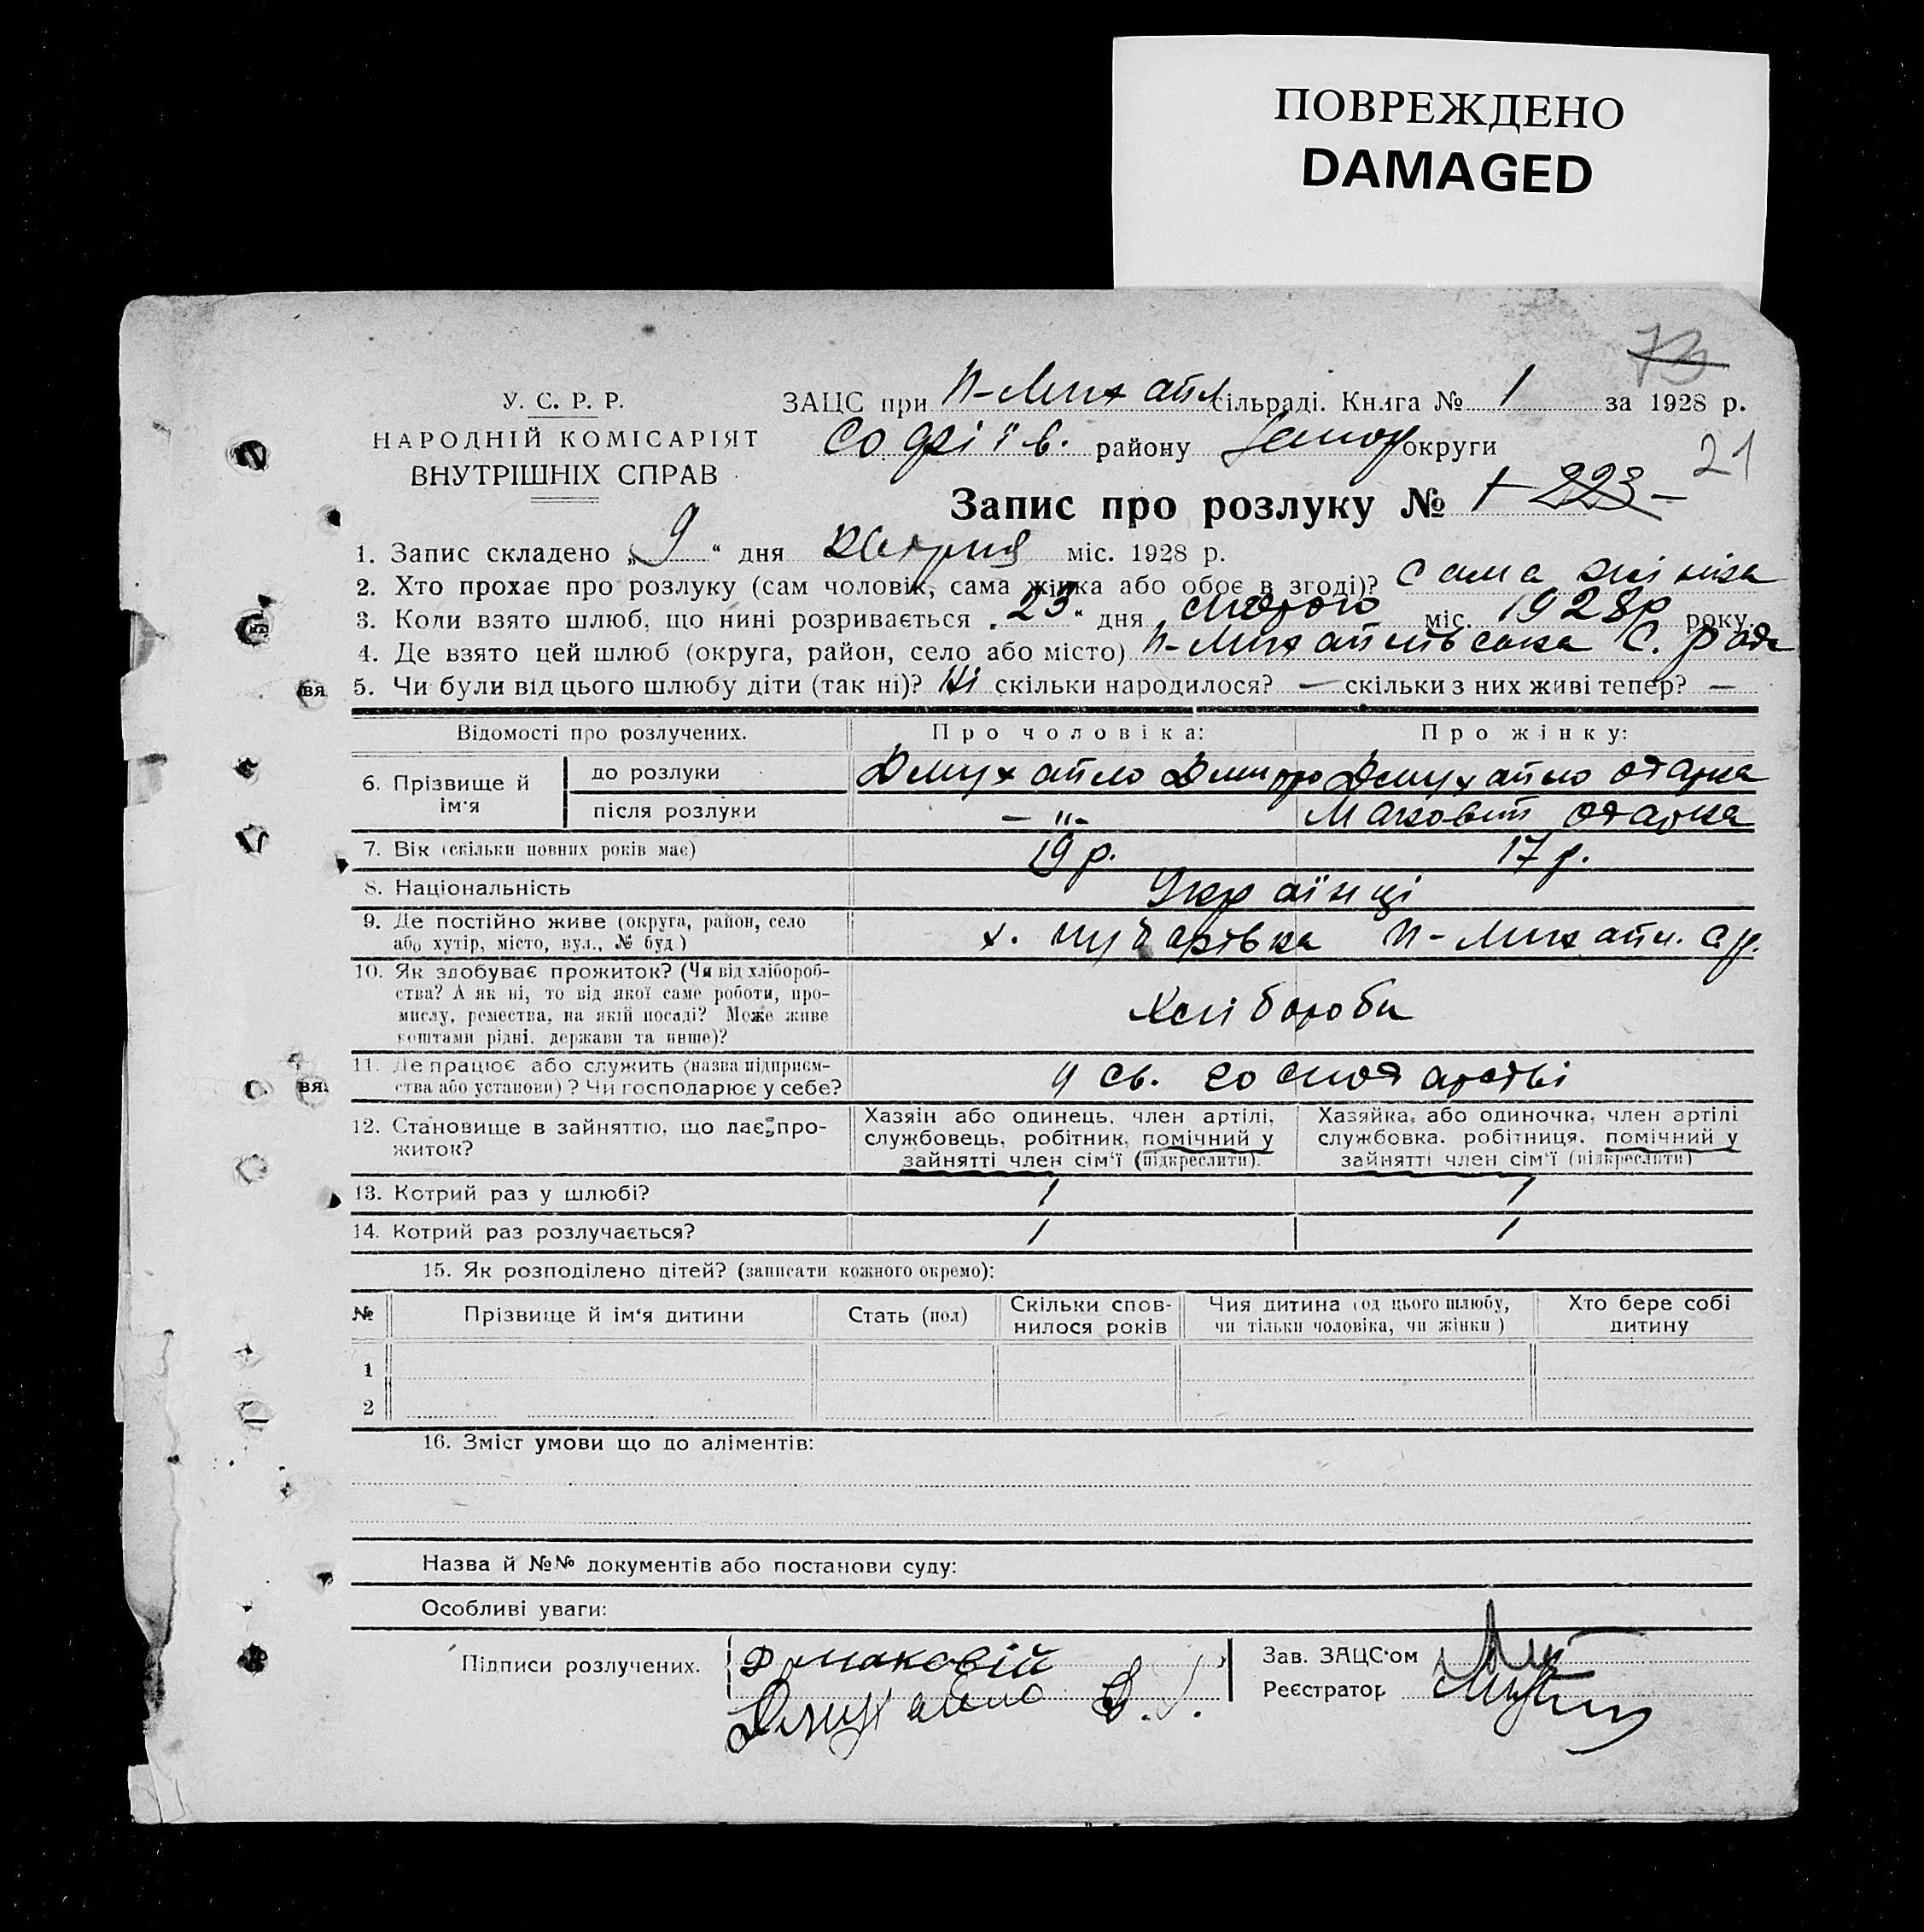 ПОВРЕЖДЕНО
DAMAGED
73
У. С. Р. Р.
НАРОДНІЙ КОМІСАРІЯТ
ВНУТРІШНІХ СПРАВ
ЗАЦС при Н-Михайл сільраді. Книга № 1 за 1928 р.
Софіїв. району округи
21
Запис про розлуку № 1 223
1. Запис складено „9“ дня квітня міс. 1928 р.
2. Хто прохає про розлуку (сам чоловік, сама жінка або обоє в згоді)? сама жінка
3. Коли взято шлюб, що нині розривається „23“ дня лютого міс. 1928р року.
4. Де взято цей шлюб (округа, район, село або місто) Н-Михайлівська С. рада
5. Чи були від цього шлюбу діти (так ні)? Ні скільки народилося? — скільки з них живі тепер? —
Відомості про розлучених. Про чоловіка: Про жінку:
6. Прізвище й ім'я
до розлуки Дмухайло Дмитро Дмухайло Одарка
після розлуки — „ - Маковій Одарка
7. Вік (скільки повних років має) 19 р. 17 р.
8. Національність Українці
9. Де постійно живе (округа, район, село
або хутір, місто, вул., № буд) х. Н-Михайл. с/р.
10. Як здобуває прожиток? (Чи від хлібороб-
ства? А як ні, то від якої саме роботи, про-
мислу, ремества, на якій посаді? Може живе
коштами рідні, держави та инше)? Хлібороби
11. Де працює або служить (назва підприєм-
ства або установи)? Чи господарює у себе? у св. господарстві
12. Становище в зайняттю, що дає про-
житок?
Хазяїн або одинець, член артілі,
службовець, робітник, помічний у
зайнятті член сім'ї (підкреслити).
Хазяйка, або одиночка, член артілі
службовка, робітниця, помічний у
зайнятті член сім'ї (підкреслити)
13. Котрий раз у шлюбі? 1 1
14. Котрий раз розлучається? 1 1
15. Як розподілено дітей? (записати кожного окремо):
№ Прізвище й ім'я дитини Стать (пол) Скільки спов-
нилося років Чия дитина (од цього шлюбу,
чи тільки чоловіка, чи жінки) Хто бере собі
дитину
1
2
16. Зміст умови що до аліментів:
Назва й №№ документів або постанови суду:
Особливі уваги:
Підписи розлучених. маковій
Дмухайло
Зав. ЗАЦС'ом
Реєстратор